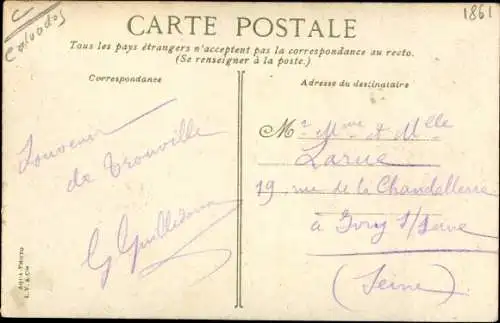 C
Calvados
1861
CARTE POSTALE
Tous les pays étrangers n'acceptent pas la correspondance au recto.
(Se renseigner à la poste.)
Correspondance
Adresse du destinataire
Souvenir
de Trouville
Mr Mme et Melle
Larue
19 rue de la Chandellerie
à Ivry s/Seine
(Seine)